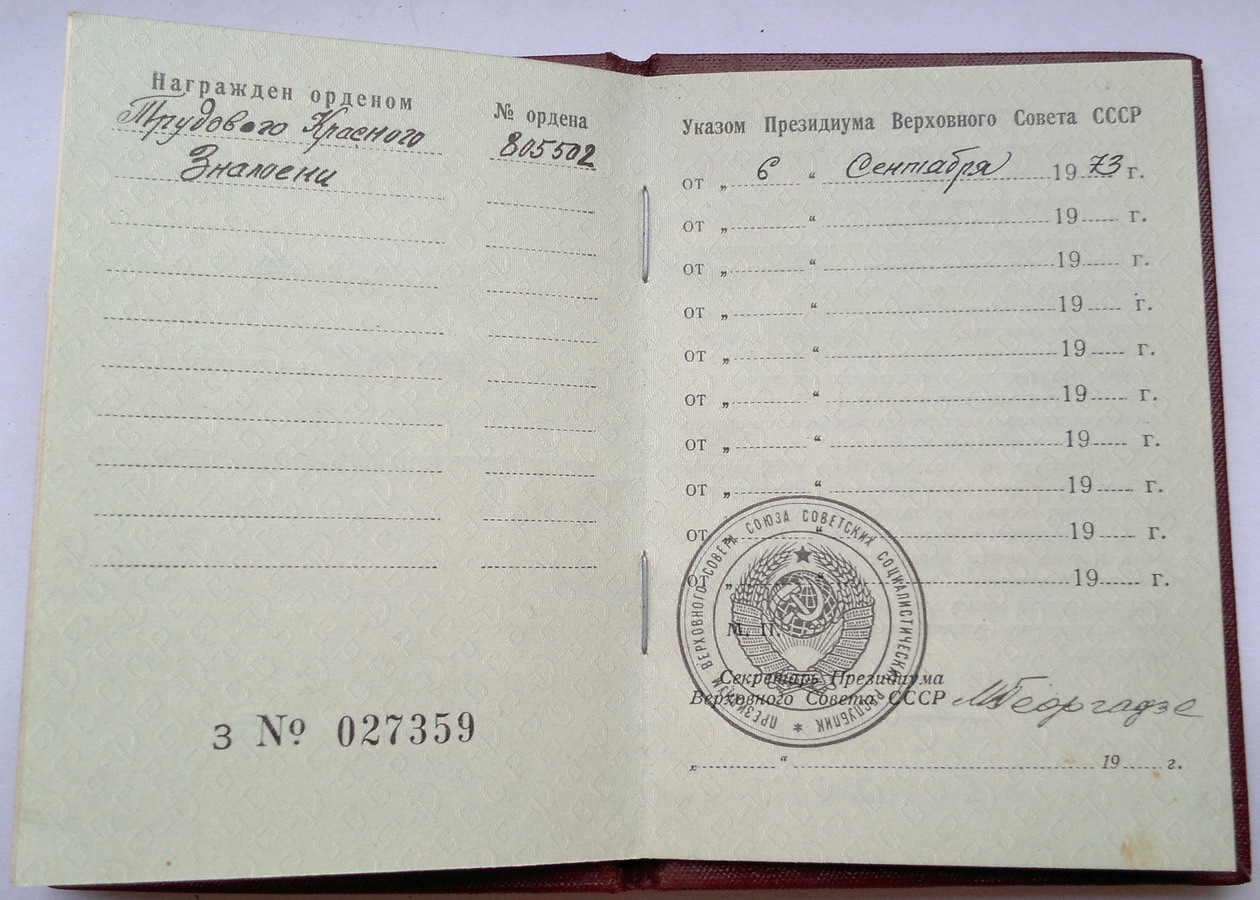 Награжден орденом
№ ордена
Трудового Красного
805502
Знамени
З № 027359
Указом Президиума Верховного Совета СССР
от „ 6 “ Сентября 1973 г.
от „ “ 19 г.
от „ “ 19 г.
от „ “ 19 г.
от „ “ 19 г.
от „ “ 19 г.
от „ “ 19 г.
от „ “ 19 г.
от „ “ 19 г.
от „ “ 19 г.
ПРЕЗИДИУМ ВЕРХОВНОГО СОВЕТА СОЮЗА СОВЕТСКИХ СОЦИАЛИСТИЧЕСКИХ РЕСПУБЛИК *
М. П.
Секретарь Президиума
Верховного Совета СССР МГеоргадзе
„ “ 19 г.